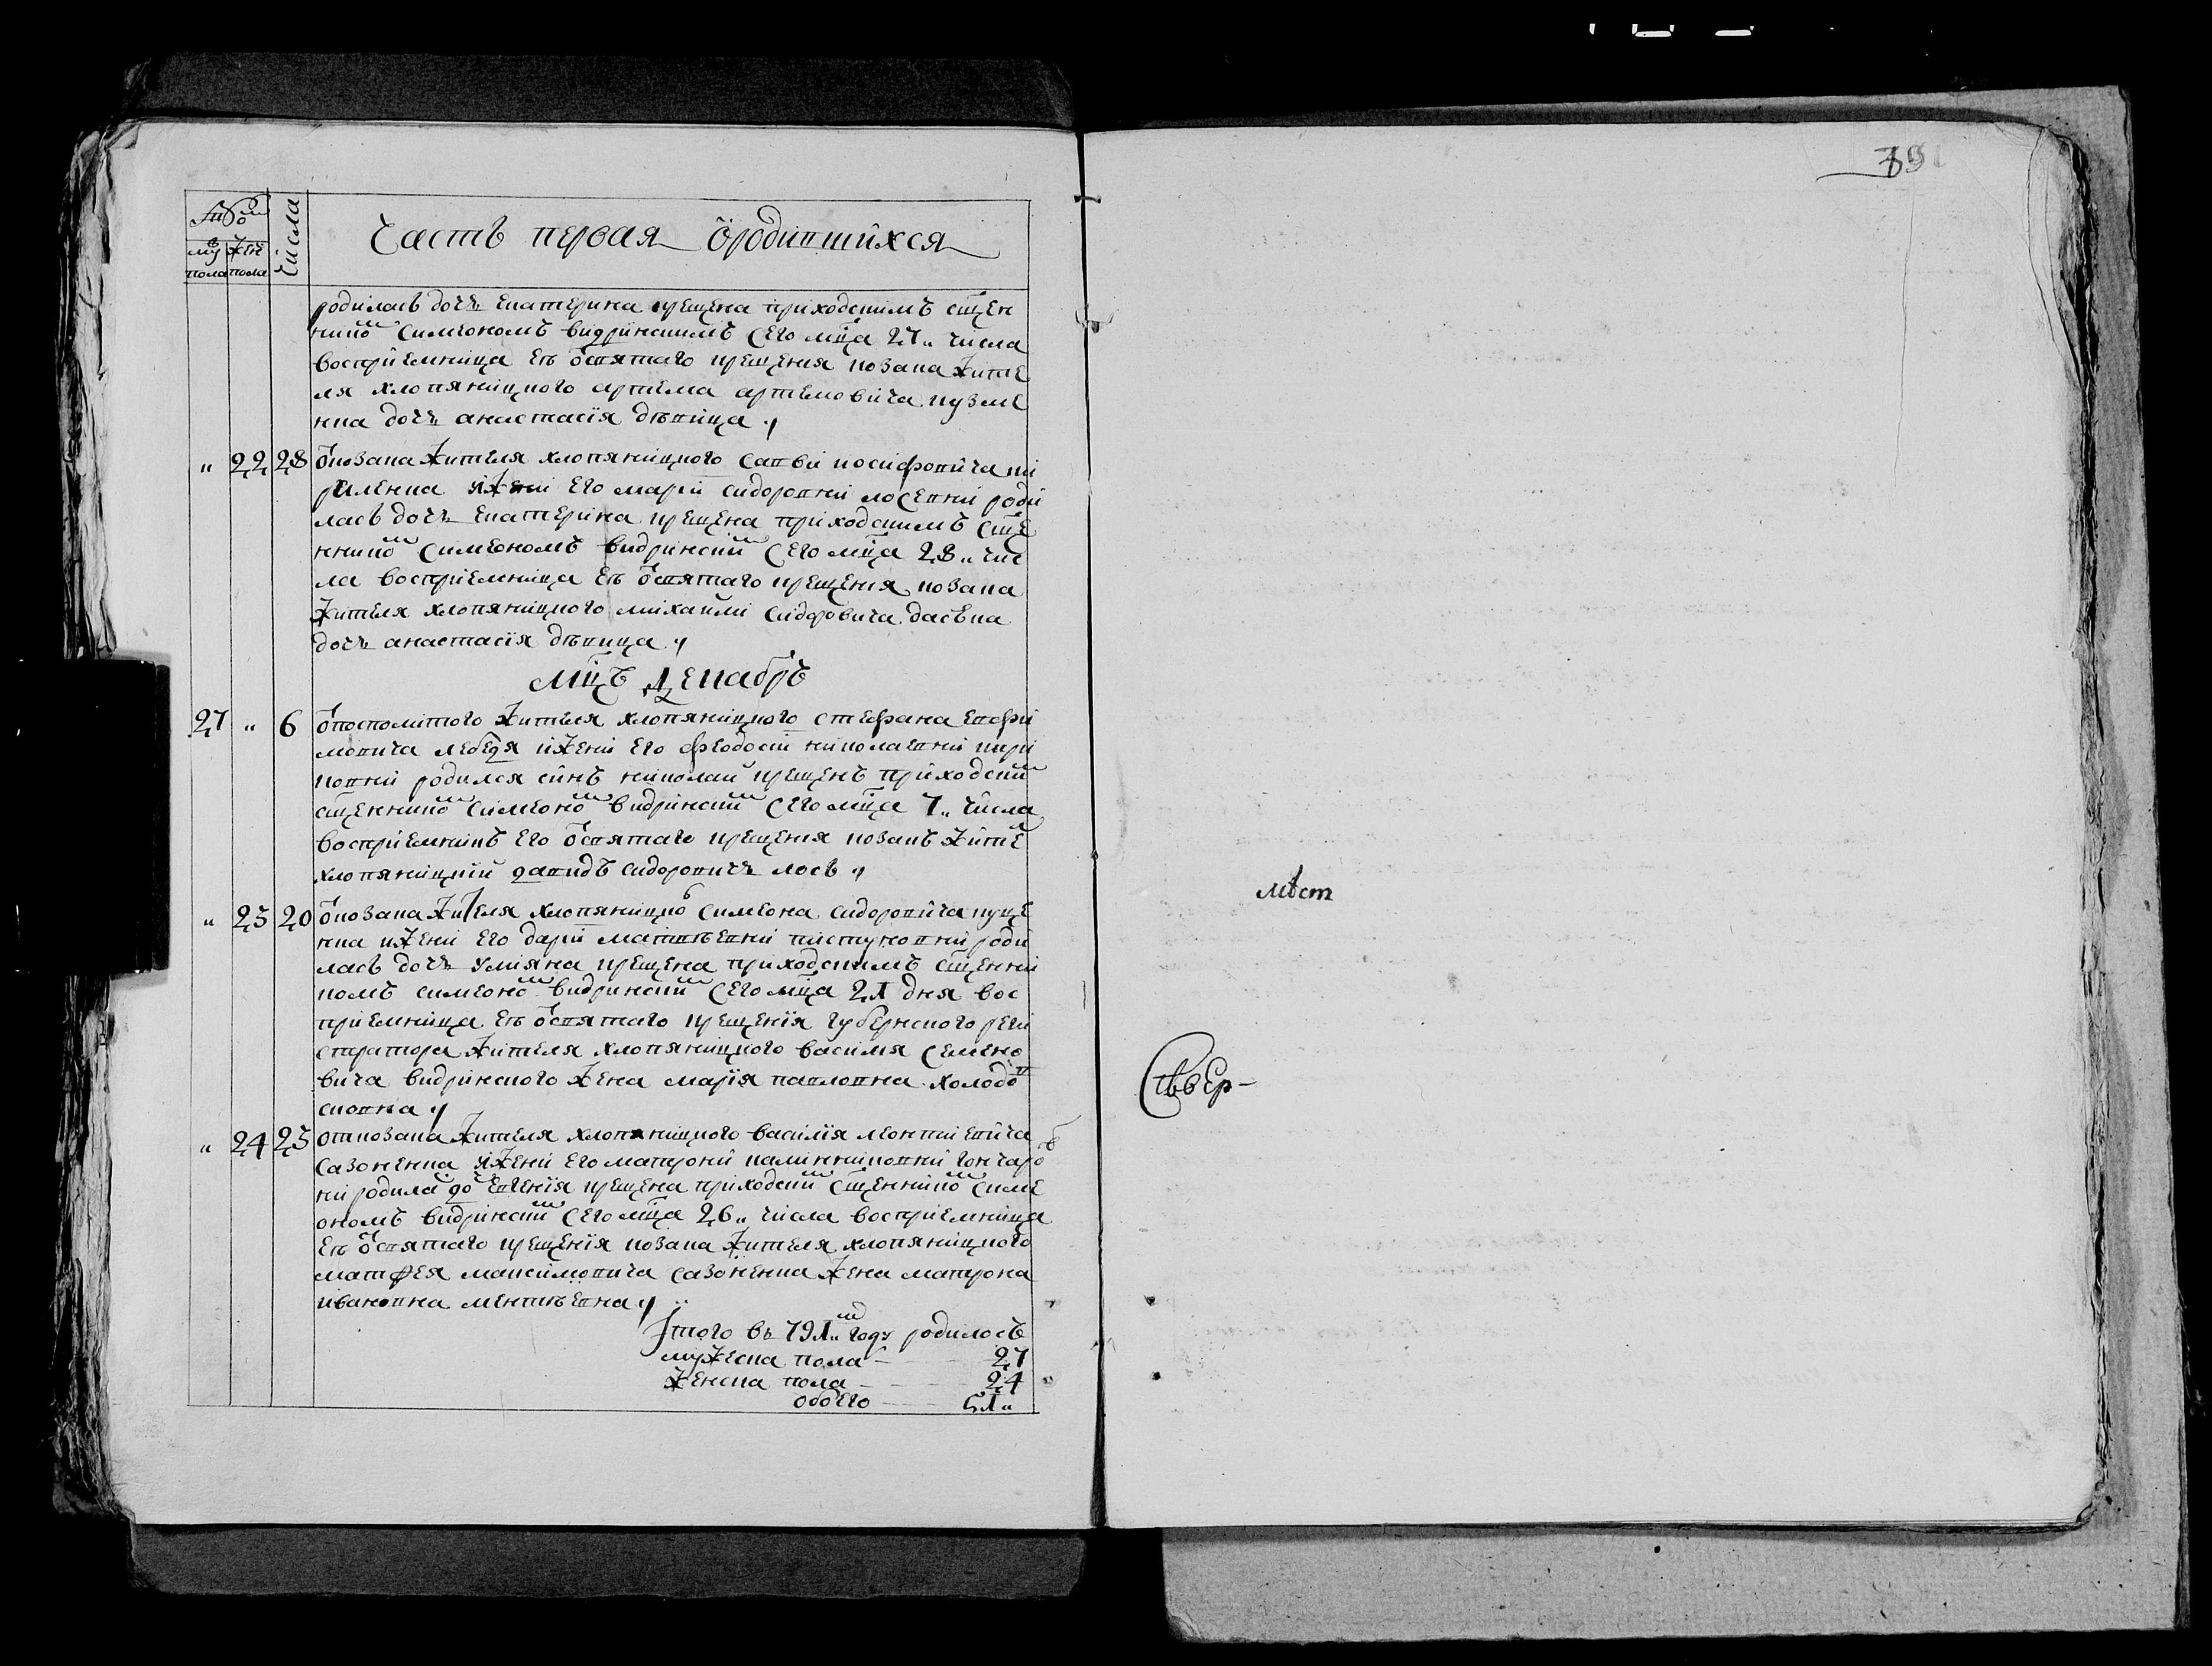 391
Числа
муⷤ женⷭ
пола пола
Часть первая о родившихся
родилась дочь Екатерина крещена приходскимъ сщен
никоⷨ Симеономъ Видринскимъ сего мца 27„ числа
восприемница еѣ ѿ святаго крещения козака жите
ля хлопяницкого Артема Артемовича Кузме
нка дочь Анастасія дѣвица
„ 22 28 ѿ козака жителя хлопяницкого Савви Иосифовича
риленка и жени его Марїи Сидоровни Лосевни роди
лась дочь Екатерина крещена приходскимъ сще
нникоⷨ Симеономъ Видринскиⷨ сего мца 28„ чис
ла восприемница еѣ ѿ святаго крещения козака
жителя хлопяницкого Михаили Сидоровича
дочь Анастасія дѣвица
Мцъ Декабрь
27 „ 6 ѿ посполитого жителя хлопяницкого Стефана Евфи
мовича Лебедя и жени его Феодосїи Николаевни
ковни родился синъ Николай крещенъ приходскиⷨ
сщенникоⷨ Симеоноⷨ Видринскиⷨ сего мца 7„ числа
восприемникъ его ѿ святаго крещения козакъ житеⷧ
хлопяницкїй Давидъ Сидоровичь Лось
„ 23 20 ѿ козака жителя хлопяницкоⷢ Симеона Сидоровича Куце
нка и жени его Дарїи Матвѣевни Пистуновни роди
лась дочь Улияна крещена приходскимъ сщенни
комъ Симеоноⷨ Видринскиⷨ сего мца 21 дня вос
приемница еѣ ѿ святаго крещенїя губернского реги
стратора жителя хлопяницкого Василя Семено
вича Видринского жена Марїя Павловна Холодоⷡ
сковна
„ 24 25 от козака жителя хлопяницкого Василїя Леонтиевича
Сазоненка и жени его Матрони Калинниковни Гончароⷡ
ни родилаⷭ доⷱ Евгенїя крещена приходскиⷨ сщенникоⷨ Симе
ономъ Видринскиⷨ сего мца 26„ числа восприемница
еѣ ѿ святаго крещенїя козака жителя хлопяницкого
Матфея Максимовича Сазоненка жена Матрона
Ивановна
Итого въ 791„ⷨ году родилось
мужеска пола — 27
женска пола — 24
обоего — 51„
мѣст
Сѣвер-